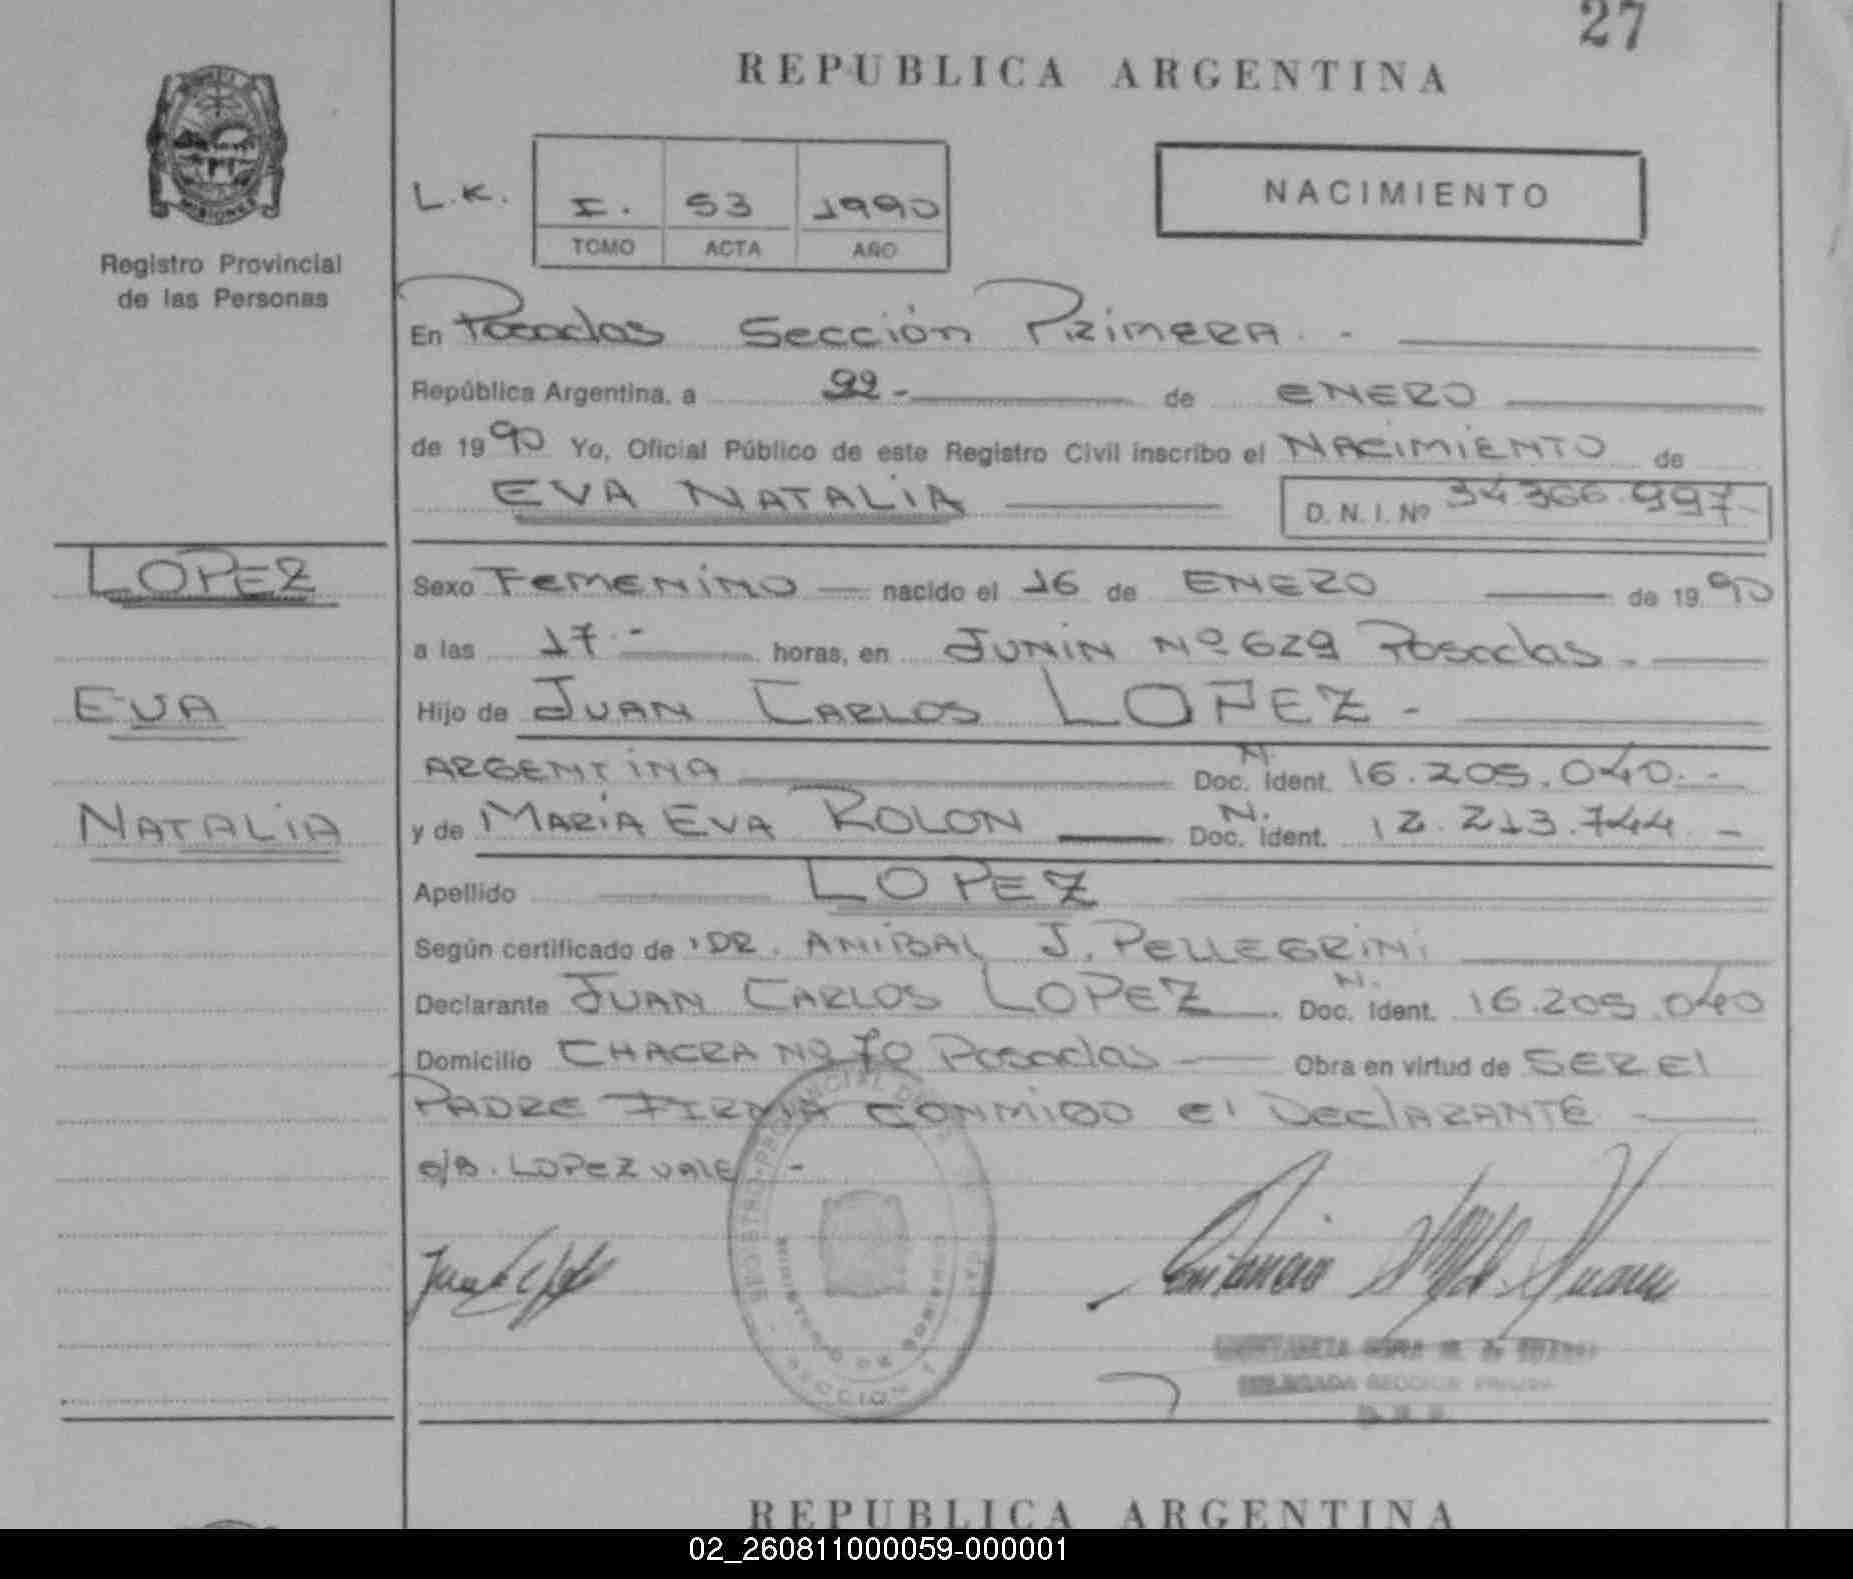 27
REPUBLICA ARGENTINA
MISIONES
Registro Provincial
de las Personas
L.K.
I. 53 1990
TOMO ACTA AÑO
NACIMIENTO
En Posadas Sección Primera. -
República Argentina, a 22- de ENERO
de 1990 Yo, Oficial Público de este Registro Civil inscribo el NACIMIENTO de
EVA NATALIA
D.N.I. Nº 34.366.997-
LOPEZ
EVA
NATALIA
Sexo FEMENINO nacido el 16 de ENERO de 1990
a las 17.- horas, en JUNIN Nº 629 Posadas.-
Hijo de JUAN CARLOS LOPEZ -
ARGENTINA N. Doc. Ident. 16.205.040.-
y de MARIA EVA ROLON N. Doc. Ident. 12.213.744 -
Apellido LOPEZ
Según certificado de DR. ANIBAL J. PELLEGRINI
Declarante JUAN CARLOS LOPEZ. N. Doc. Ident. 16.205.040
Domicilio CHACRA Nº 70 Posadas Obra en virtud de SER El
PADRE FIRMA CONMIGO El DEClARANTE
s/B. LOPEZ VALE -
REGISTRO PROVINCIAL DE
MINISTERIO DE GOBIERNO
SECCION 1
DELEGADA SECCION
REPUBLICA ARGENTINA
02_260811000059-000001